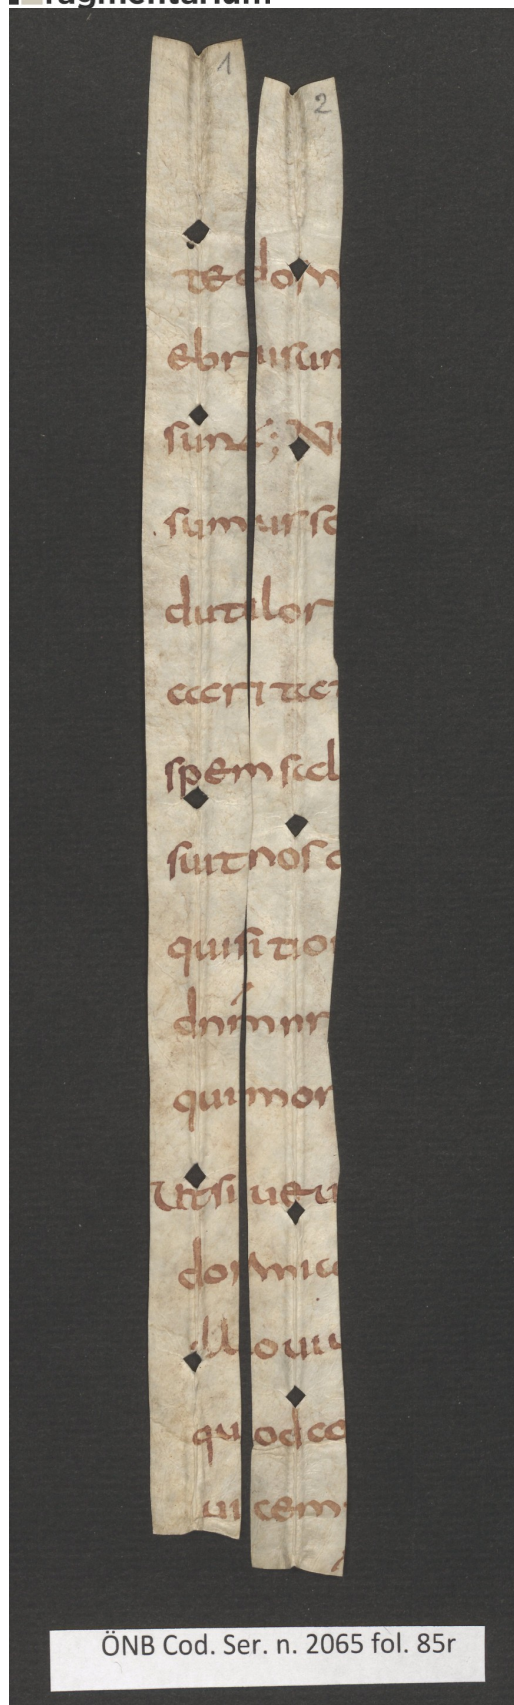 fragmentarium
1 2
te dorm
ebrii sun
sunt; No
sumus so
duti lor
caritat
spem sal
suit nos d
quisitio
dnm nr
qui mor
Ut siue ui
dormia
illo uiu
quod co
uicem
ÖNB Cod. Ser. n. 2065 fol. 85r